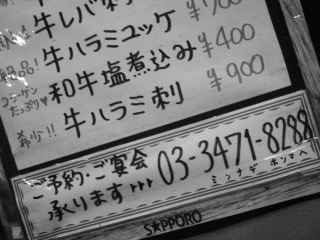 牛レバ刺
牛ハラミユッケ ¥700
コラーゲンたっぷり♥ 和牛塩煮込み ¥400
希少!! 牛ハラミ刺 ¥900
ご予約・ご宴会
承ります>>> 03-3471-8288
ミンナデ ホンマヘ
SAPPORO